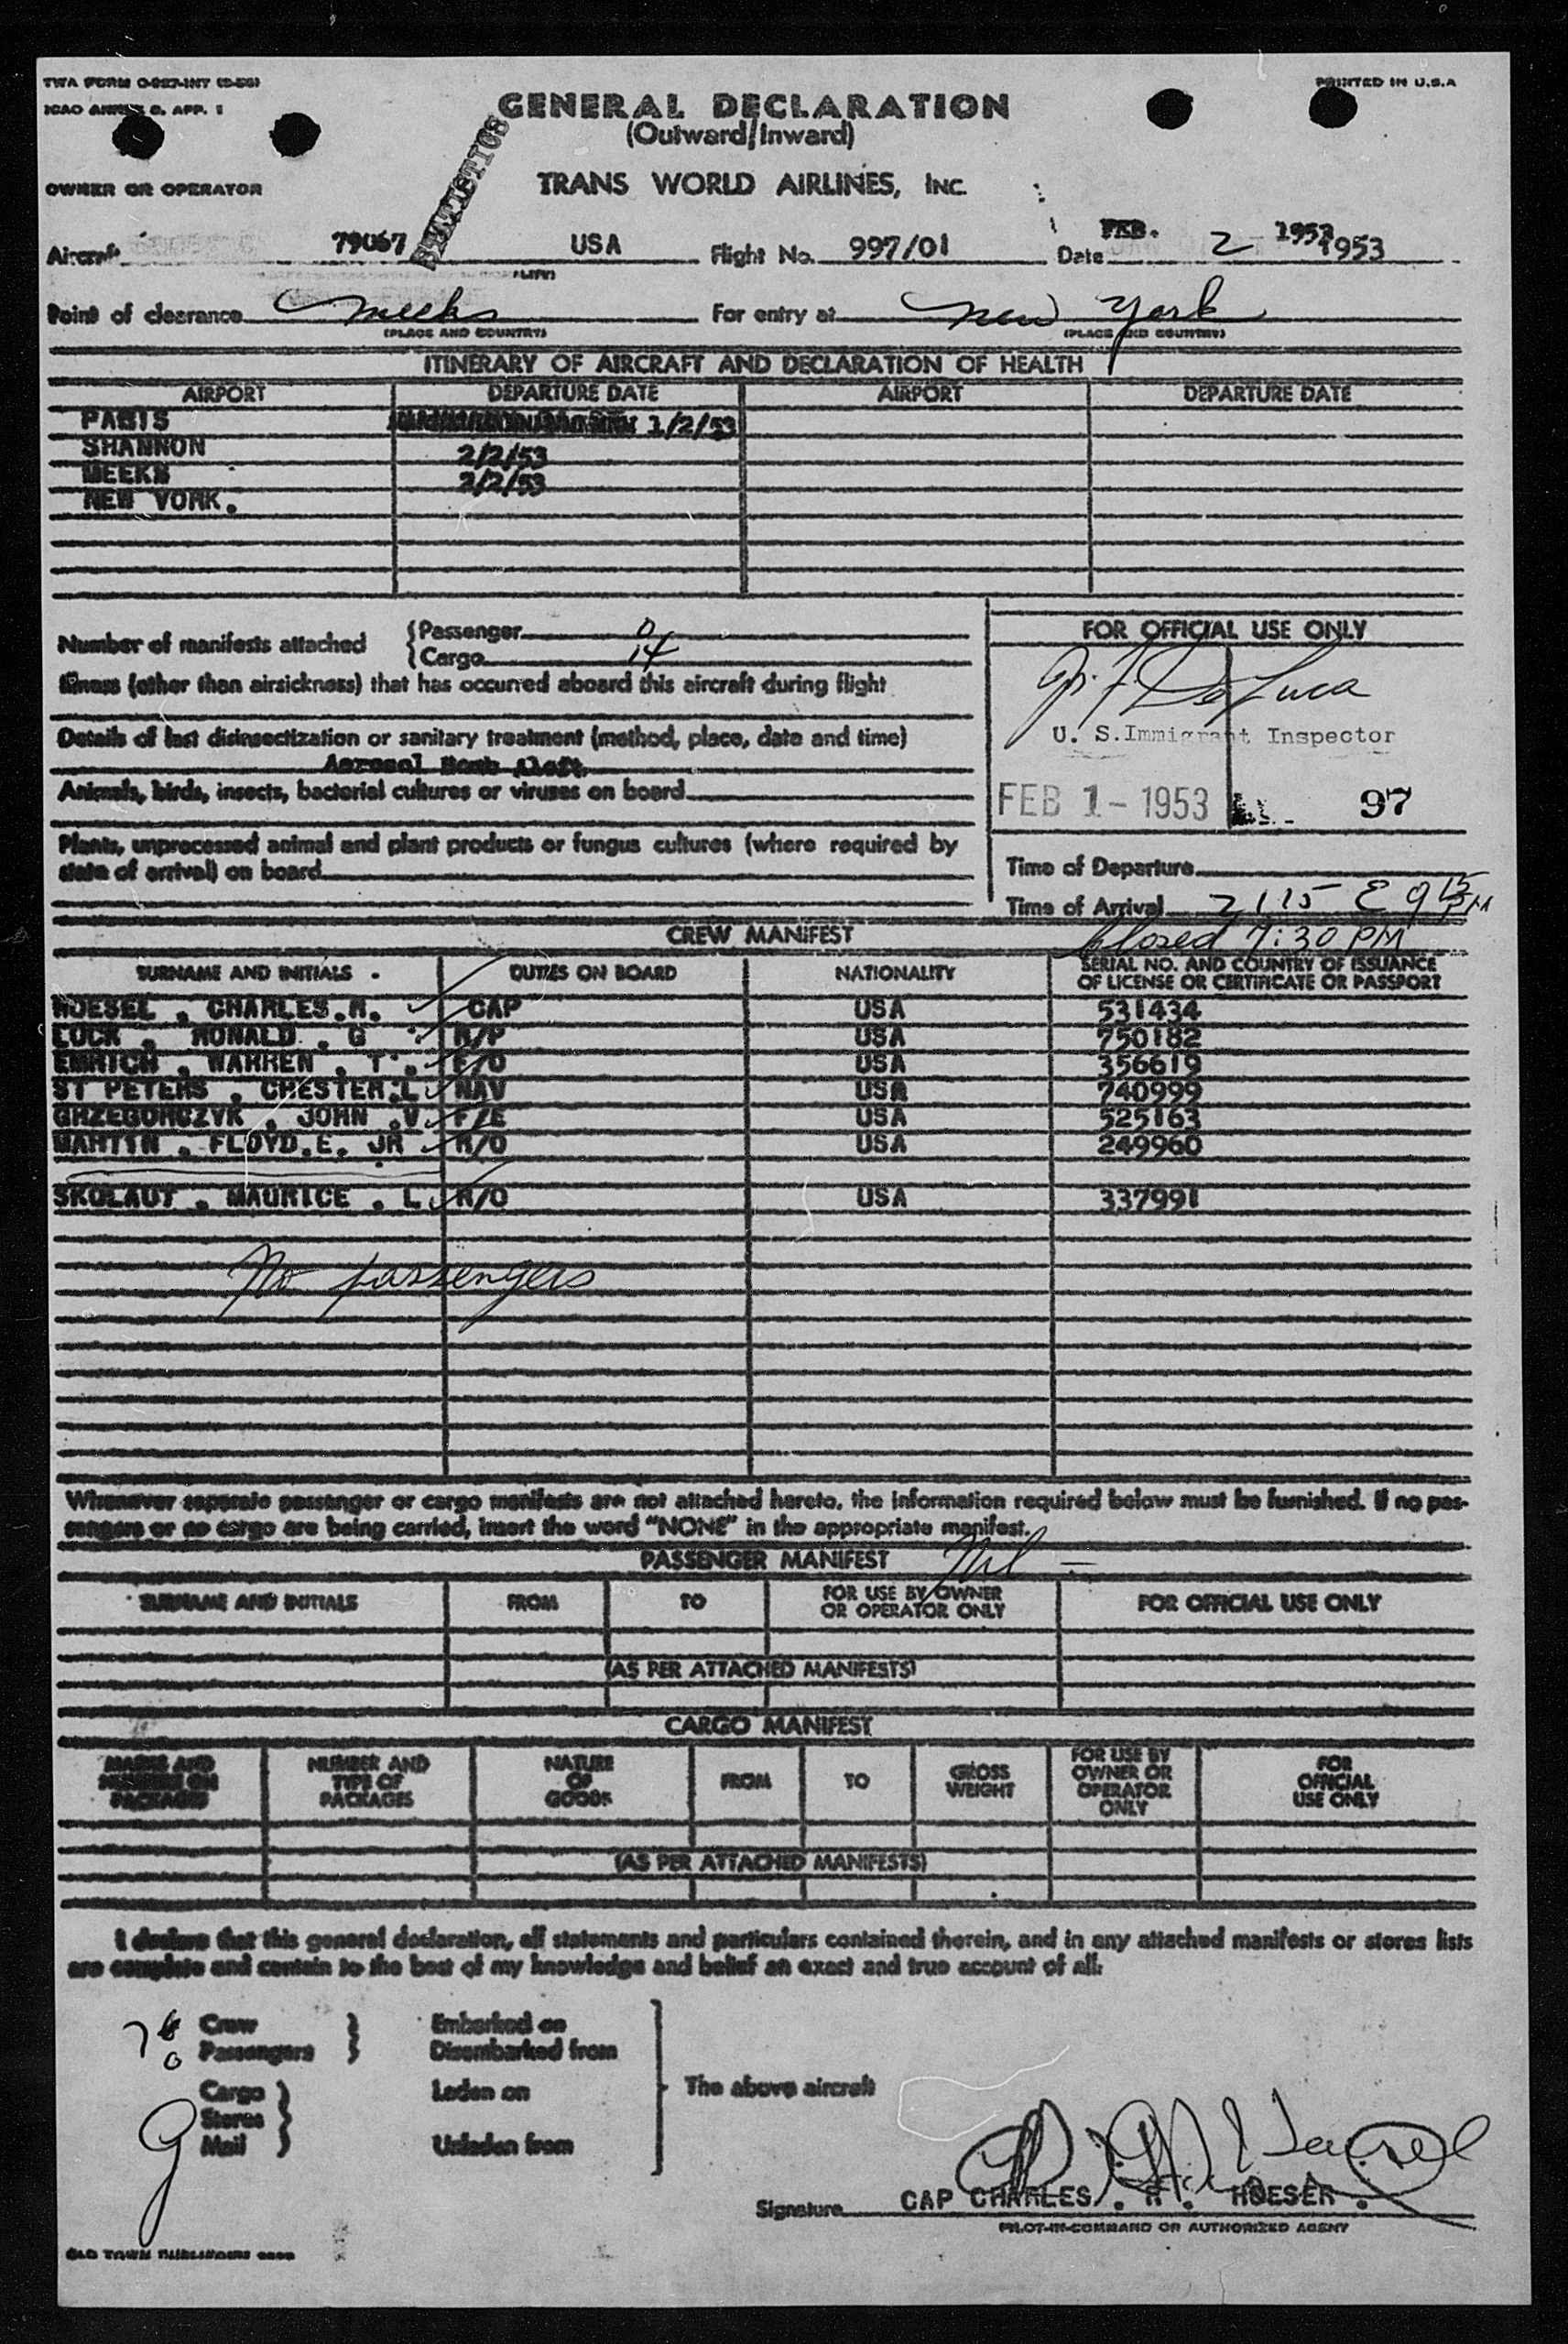 TWA FORM O-927-INT (2-50)
PRINTED IN U.S.A
ICAO ANNEX 9. APP. 1
GENERAL DECLARATION
(Outward/Inward)
STATISTICS
OWNER OR OPERATOR
TRANS WORLD AIRLINES, INC.
Aircraft 79067 USA Flight No. 997/01 Date FEB. 2 1953 1953
Point of clearance Meeks For entry at New York
(PLACE AND COUNTRY) (PLACE AND COUNTRY)
ITINERARY OF AIRCRAFT AND DECLARATION OF HEALTH
AIRPORT DEPARTURE DATE AIRPORT DEPARTURE DATE
PARIS 1/2/53
SHANNON 2/2/53
MEEKS 2/2/53
NEW YORK.
Number of manifests attached {Passenger 0
{Cargo 14
Illness (other than airsickness) that has occurred aboard this aircraft during flight
Details of last disinsectization or sanitary treatment (method, place, date and time)
Aerosol Bomb Aloft.
Animals, birds, insects, bacterial cultures or viruses on board
Plants, unprocessed animal and plant products or fungus cultures (where required by
state of arrival) on board
FOR OFFICIAL USE ONLY
De Luca
U. S. Immigrant Inspector
FEB 1 - 1953 97
Time of Departure
Time of Arrival 2115 E 9 15 PM
Closed 7:30 PM
CREW MANIFEST
SURNAME AND INITIALS DUTIES ON BOARD NATIONALITY SERIAL NO. AND COUNTRY OF ISSUANCE
OF LICENSE OR CERTIFICATE OR PASSPORT
HOESEL . CHARLES.R. CAP USA 531434
LUCK . RONALD . G R/P USA 750182
EMRICH . WARREN . T . F/O USA 356619
ST PETERS . CHESTER.L NAV USA 740999
GRZEGORCZYK . JOHN .V. F/E USA 525163
MARTIN . FLOYD.E. JR R/O USA 249960
SKOLAUT . MAURICE . L. R/O USA 337991
No passengers
Whenever separate passenger or cargo manifests are not attached hereto, the information required below must be furnished. If no pas-
sengers or no cargo are being carried, insert the word "NONE" in the appropriate manifest.
PASSENGER MANIFEST Nil -
SURNAME AND INITIALS FROM TO FOR USE BY OWNER OR OPERATOR ONLY FOR OFFICIAL USE ONLY
(AS PER ATTACHED MANIFESTS)
CARGO MANIFEST
MARKS AND NUMBERS ON PACKAGES NUMBER AND TYPE OF PACKAGES NATURE OF GOODS FROM TO GROSS WEIGHT FOR USE BY OWNER OR OPERATOR ONLY FOR OFFICIAL USE ONLY
(AS PER ATTACHED MANIFESTS)
I declare that this general declaration, all statements and particulars contained therein, and in any attached manifests or stores lists
are complete and contain to the best of my knowledge and belief an exact and true account of all:
7 Crew Embarked on
0 Passengers Disembarked from
Cargo Laden on The above aircraft
Stores
Mail Unladen from
Signature CAP CHARLES . R . HOESER .
PILOT-IN-COMMAND OR AUTHORIZED AGENT